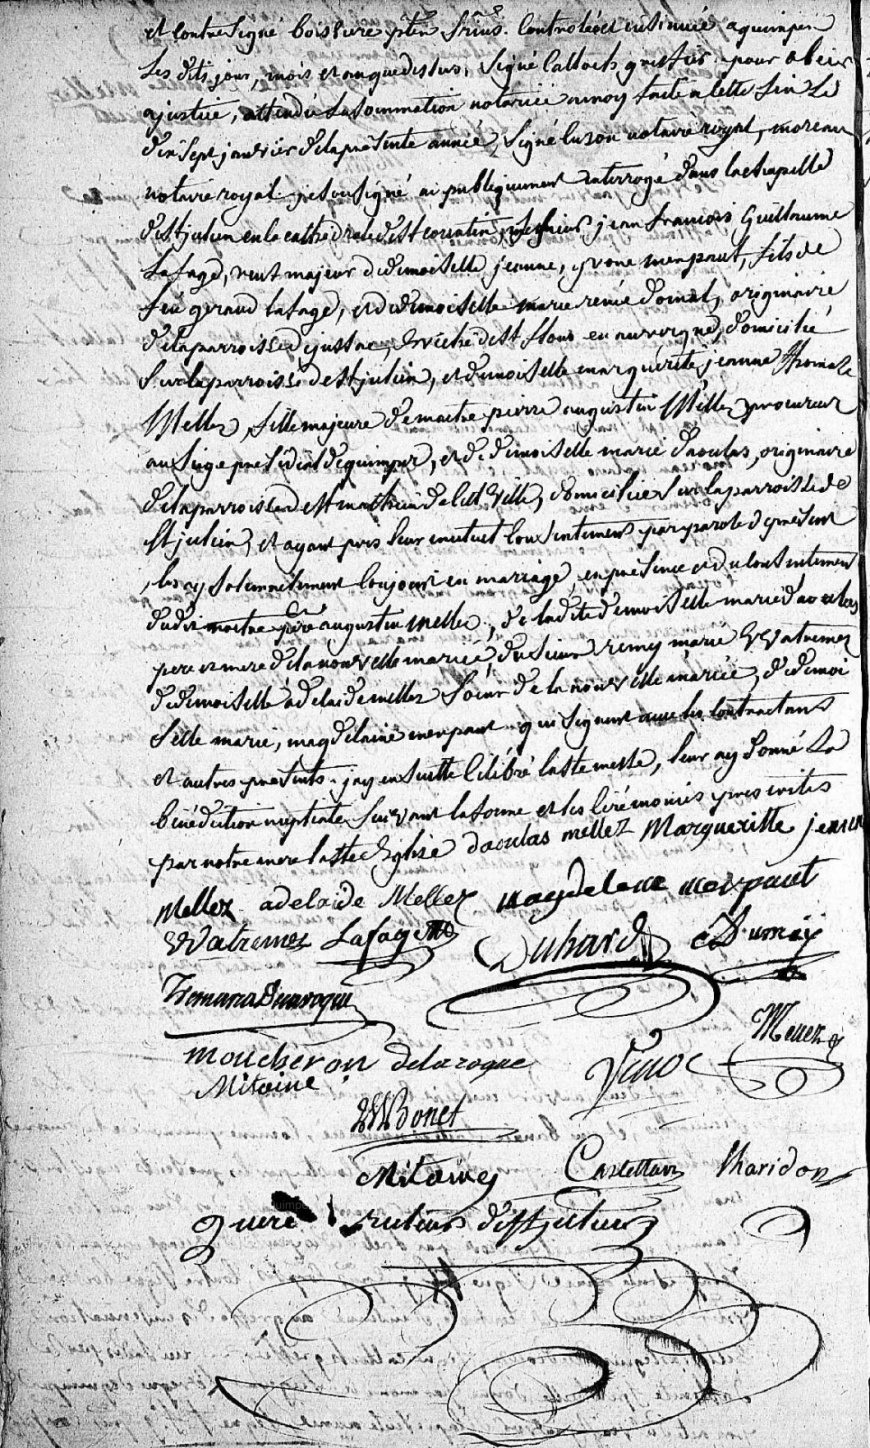 et contresigné boissiere ptre srius. controlé et insinué a quimper
les dits jour, mois et an que dessus, signé calloch greffier. pour obeir
a justice, attendu la sommation notariée a moy faite a cette fin le
dix sept janvier de la presente année, signé luzon notaire royal, moreau
notaire royal je soussigné ai publiquement interrogé dans la chapelle
de st julien en la cathédrale de st corentin, jean francois Guillaume
Lafage, veuf majeur de demoiselle jeanne, yvone merpaut, fils de
feu geraud lafage, et de demoiselle marie renée originaire
de la parroisse de jussac, evéché de st flour en auvergne, domicilié
sur la parroisse de st julien, et demoiselle marguerite jeanne Thomase
Mellez, fille majeure de maitre pierre augustin Mellez procureur
au siege présidial de quimper, et de demoiselle marie daoulas, originaire
de la parroisse de st mathieu de cette ville, domiciliée sur la parroisse de
st julien, et ayant pris leur mutuel consentement par parole de present
les ay solemnellement conjoint en mariage, en présence et du consentement
dudit maitre pre augustin mellez, de ladite demoiselle marie daoulas
pere et mere de la nouvelle mariée, du sieur remy marie Watremez
de demoiselle adelaide mellez soeur de la nouvelle mariée, de demoi
selle marie, magdelaine merpaut qui signent avec les contractans
et autres presents. jay ensuitte célébré la ste messe, leur ay donné la
bénédiction nuptiale suivant la forme et les cérémonies prescrites
par notre mere la ste Eglise daoulas mellez Margueritte jeanne
Mellez adelaide Mellez magdelene merpaut
Watremez Lafage Duhard Dumay
Mellez
moucheron delaroque
Mitaine
Bonet
Mitaine Castellan Maridor
queré recteur de st julien